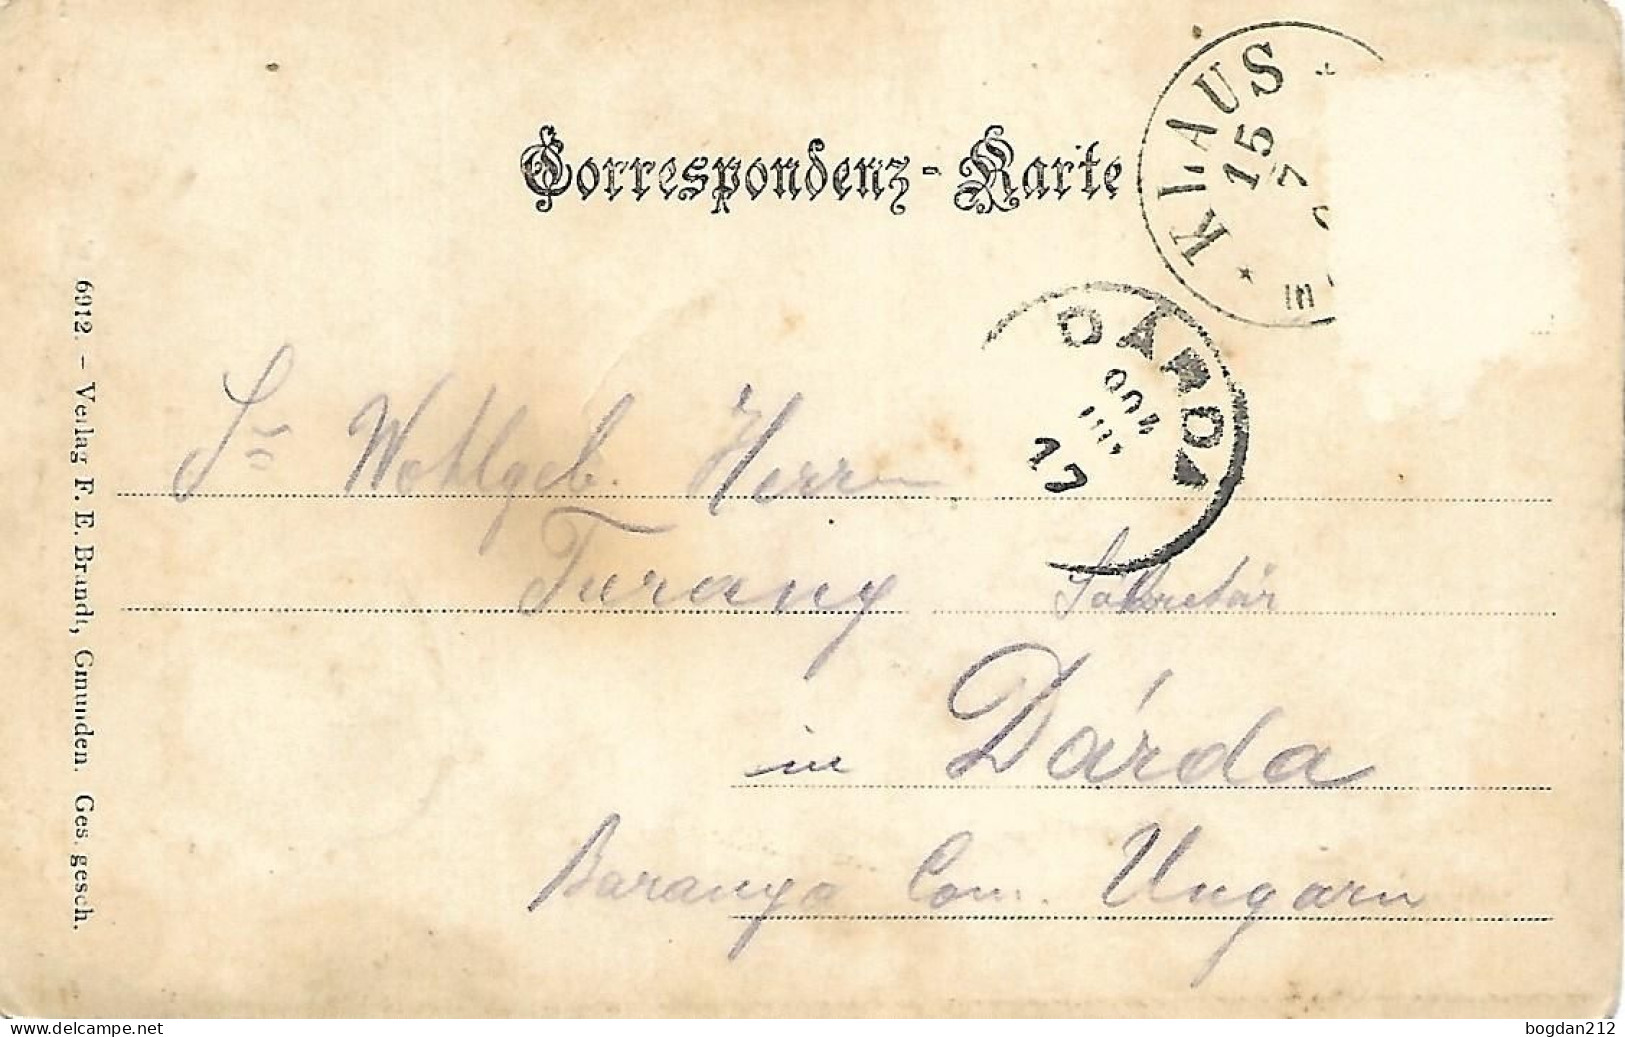 Correspondenz-Karte
KLAUS
15
7
DÁRDA
17
Sr Wohlgeb. Herrn
Turany Sekretär
in Dárda
Baranya Com. Ungarn
6912. – Verlag F. E. Brandt, Gmunden. Ges. gesch.
www.delcampe.net
bogdan212